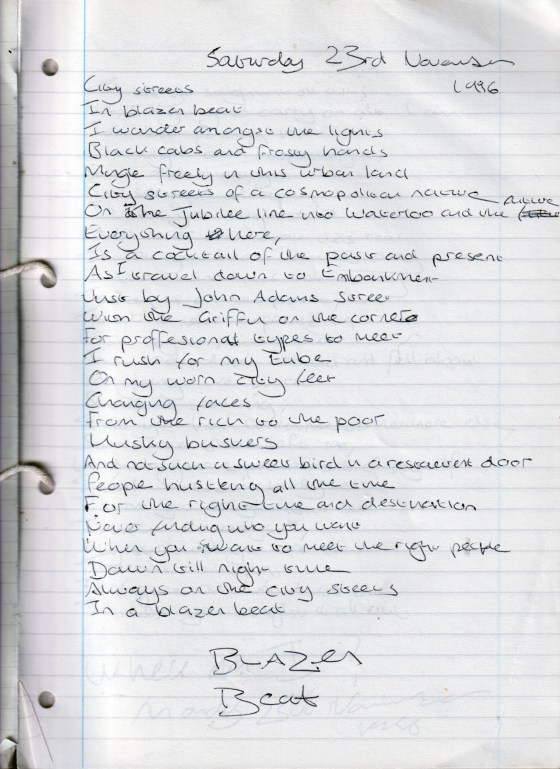 Saturday 23rd November
1996
City streets
In blazer beat
I wander amongst the lights
Black cabs and frosty hands
Mingle freely in this urban land
City streets of a cosmopolitan nature
On the Jubilee line into Waterloo and the
Everything here,
Is a cocktail of the past and present
As I travel down to Embankment
Just by John Adams Street
With the Griffin on the corner
For proffesional types to meet
I rush for my tube
On my worn city feet
Changing faces
From the rich to the poor
Husky buskers
And not such a sweet bird in a restaurent door
People hustling all the time
For the right time and destination
Never finding who you want
When you want to meet the right people
Dawn till night time
Always on the city streets
In a blazer beat
BLAZER
Beat